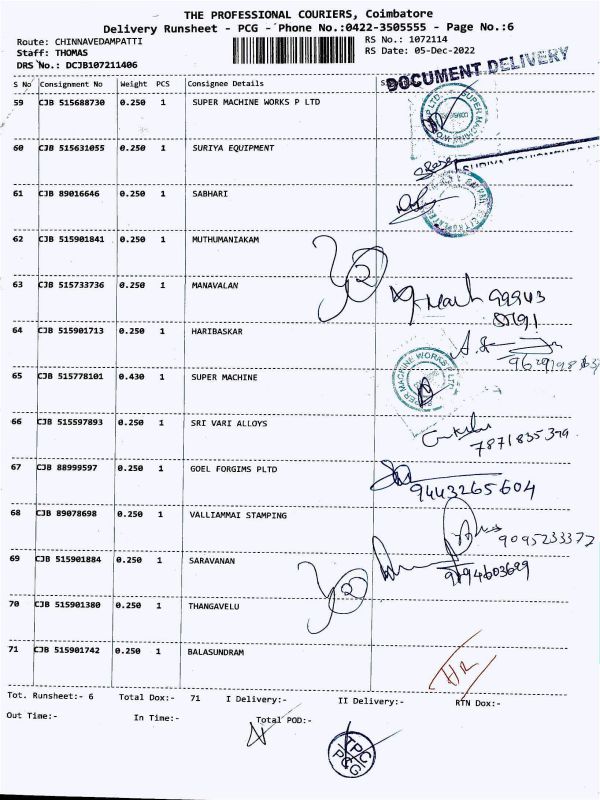 THE PROFESSIONAL COURIERS, Coimbatore
Delivery Runsheet - PCG - Phone No.:0422-3505555 - Page No.:6
Route: CHINNAVEDAMPATTI RS No.: 1072114
Staff: THOMAS RS Date: 05-Dec-2022
DRS No.: DCJB107211406
DOCUMENT DELIVERY
S No Consignment No Weight PCS Consignee Details
59 CJB 515688730 0.250 1 SUPER MACHINE WORKS P LTD
60 CJB 515631055 0.250 1 SURIYA EQUIPMENT
61 CJB 89016646 0.250 1 SABHARI
62 CJB 515901841 0.250 1 MUTHUMANIAKAM
63 CJB 515733736 0.250 1 MANAVALAN
99943
64 CJB 515901713 0.250 1 HARIBASKAR
65 CJB 515778101 0.430 1 SUPER MACHINE
SUPER MACHINE WORKS P LTD
66 CJB 515597893 0.250 1 SRI VARI ALLOYS
7871835379
67 CJB 88999597 0.250 1 GOEL FORGIMS PLTD
9443265604
68 CJB 89078698 0.250 1 VALLIAMMAI STAMPING
9095233377
69 CJB 515901884 0.250 1 SARAVANAN
70 CJB 515901380 0.250 1 THANGAVELU
71 CJB 515901742 0.250 1 BALASUNDRAM
Tot. Runsheet:- 6 Total Dox:- 71 I Delivery:- II Delivery:- RTN Dox:-
Out Time:- In Time:- Total POD:-